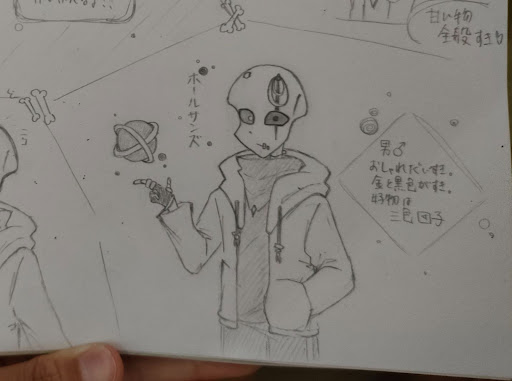 甘い物
全般すき
ボールサンズ
男♂
おしゃれだいすき。
金と黒色がすき。
好物は
三色団子